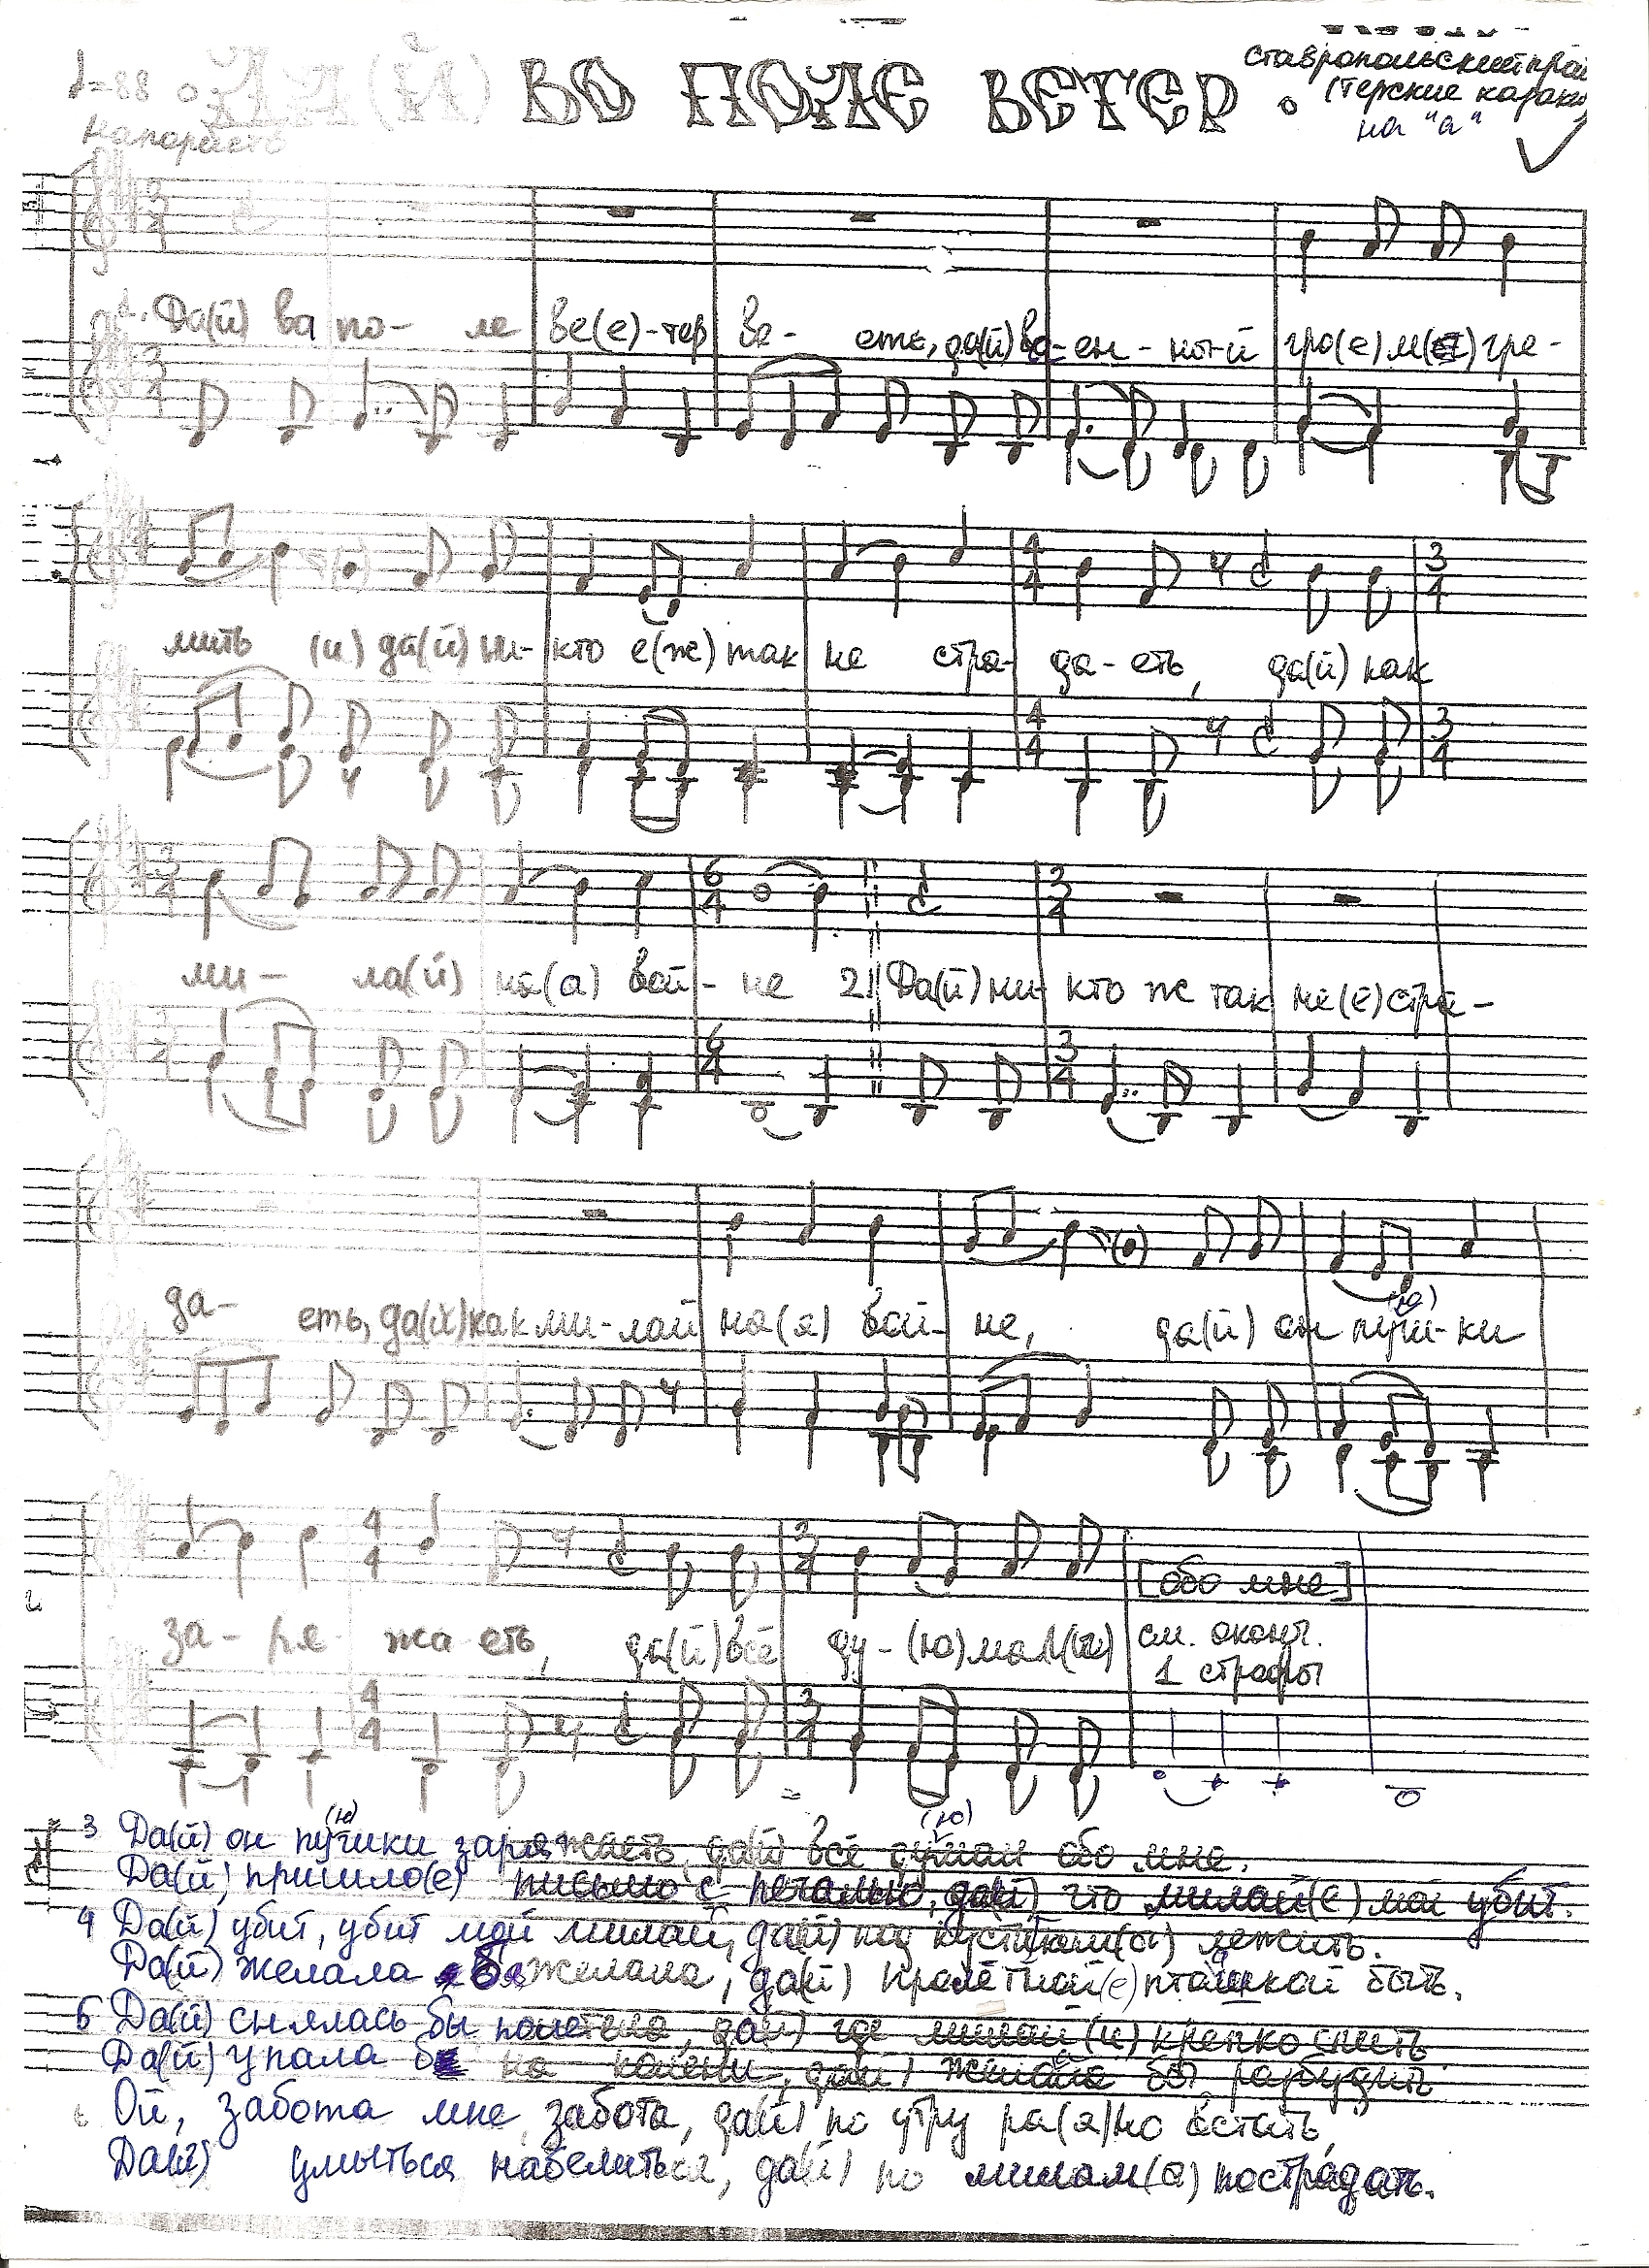 ♩=88 ДА(Й) ВО ПОЛЕ ВЕТЕР. Ставропольский край
(терские казаки)
на "а"
Напористо
1. Да(й) ва по- ле ве(е)-тер ве- еть, да(й) ва-ен-но-й гро(е)м(ы) гре-
мить (и) да(й) ни- кто е(же) так не стра- да- еть, да(й) как
ми- ла(й) на(а) вай- не 2. Да(й) ни- кто ж так не(е) стра-
да- еть, да(й) как ми-лай на(я) вай- не, да(й) он пуш(ю)-ки
за- ря- жа-еть, да(й) всё ду-(ю)мал(ы) [обо мне]
см. оконч.
1 строфы
3 Да(й) он пу(ю)шки заряжаеть, да(й) всё ду(ю)мал обо мне.
Да(й) пришло(е) письмо с печалью, да(й) что милай(е) мой убит.
4 Да(й) убит, убит мой милай, да(й) под кустиком(а) лежить.
Да(й) желала бы желала, да(й) пралётнай(е) пташкой быть.
5 Да(й) снялась бы полетела, да(й) где милай(и) крепко спить
Да(й) упала бы на колени, да(й) желала бы разбудить
6 Ой, забота мне забота, да(й) по утру ра(я)но встать,
Да(й) умыться набелиться, да(й) по милам(а) пострадать.